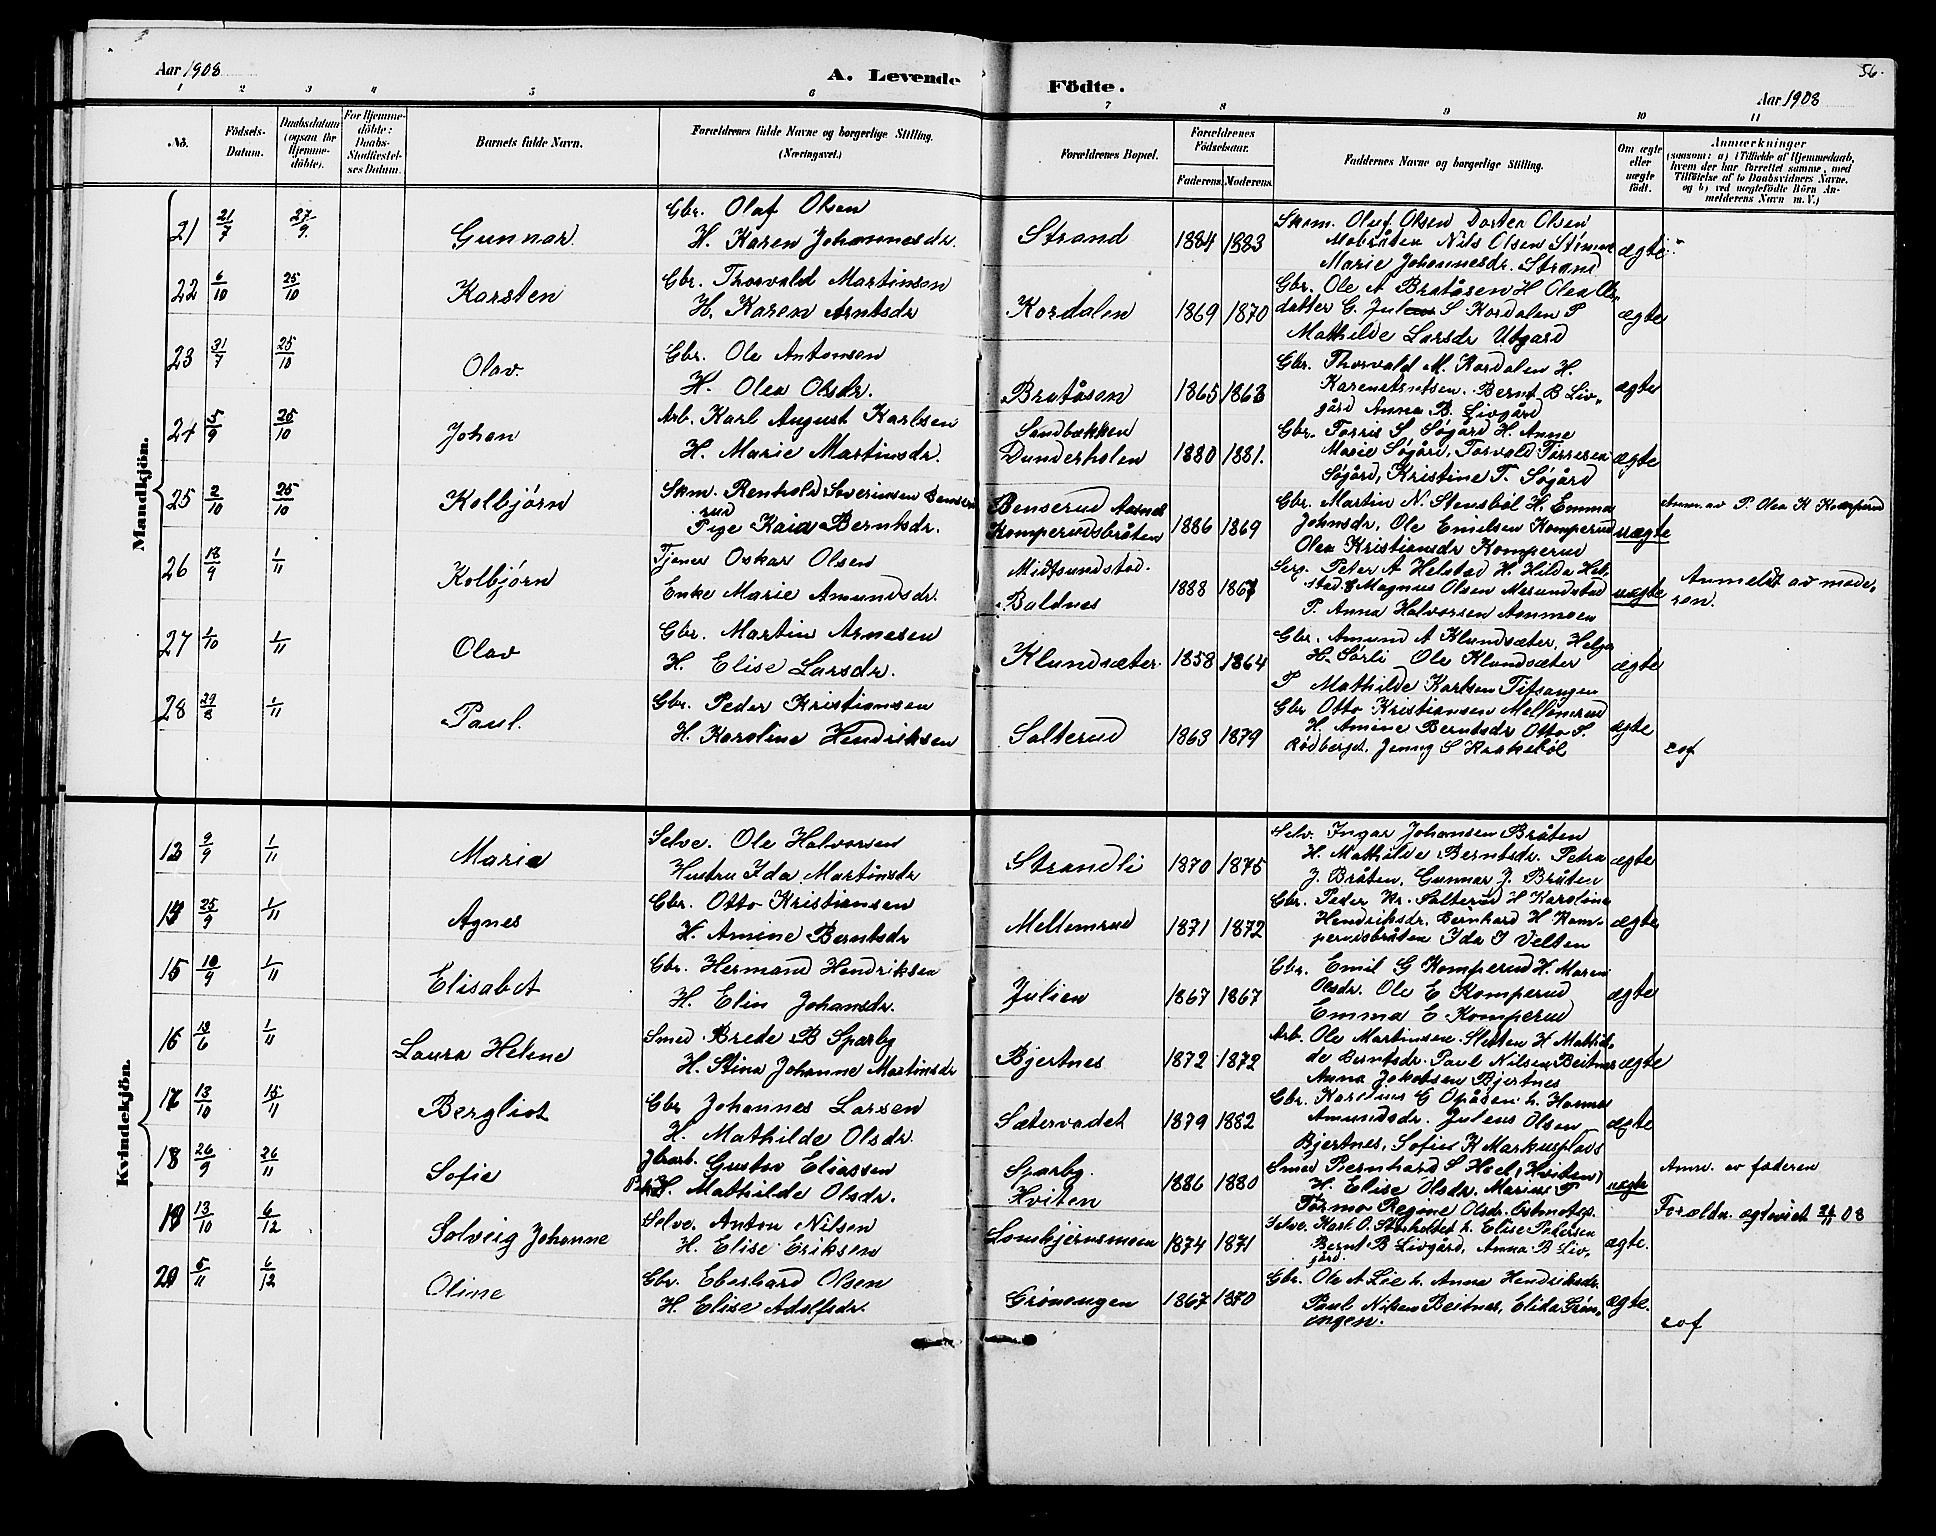 Aar 1908
A. Levende Födte.
56.
Aar 1908
1 2 3 4 5 6 7 8 9 10 11
No.
Födsels-Datum.
Daabsdatum (ogsaa for Hjemmedöbte).
For Hjemmedöbte: Daabs-Stadfæstelses Datum.
Barnets fulde Navn.
Forældrenes fulde Navne og borgerlige Stilling.
(Næringsvei.)
Forældrenes Bopæl.
Forældrenes Födselsaar.
Faderens. Moderens.
Faddernes Navne og borgerlige Stilling.
Om ægte eller uægte födt.
Anmærkninger
(saasom: a) i Tilfælde af Hjemmedaab, hvem der har forrettet samme, med Tilföielse af to Daabsvidners Navne. og b) ved uægtefödte Börn Anmelderens Navn m. V.)
Mandkjön.
21 21/7 27/9 Gunnar Gbr. Olaf Olsen
H. Karen Johannesdr. Strand 1884 1883 Skom. Oluf Olsen Dortea Olsen
Mobråten Nils Olsen
Marie Johannesdr. Strand ægte
22 6/10 25/10 Karsten Gbr. Thorvald Martinsen
H. Karen Arntsdr Kordalen 1869 1870 Gbr. Ole A Bratåsen H Olea Ols-
datter G. S Kordalen P
Mathilde Larsdr Utgård ægte
23 31/7 25/10 Olav Gbr. Ole Antonsen
H. Olea Olsdr. Bratåsen 1865 1863 Gbr. Thorvald M. Kordalen H.
Karen Arntsen. Bernt B Liv-
gård Anna B. Livgård ægte
24 5/9 25/10 Johan Arb. Karl August Karlsen
H. Marie Martinsdr. Sandbækken
Dunderholen 1880 1881. Gbr. Torris S Søgård H. Anne
Marie Søgård, Torvald Torrisen
Søgård, Kristine T. Søgård ægte
25 2/10 25/10 Kolbjørn Skm. Renhold Soverinsen Benserud
Pige Kaia Berntsdr. Benserud Aasnes
Komperudsbråten 1886 1869 Gbr. Martin N. Stensbøl H. Emma
Johnsdr, Ole Emilsen Komperud
Olea Kristiansdr Komperud uægte Anm. av P. Olea K Komperud
26 18/9 1/11 Kolbjørn Tjener Oskar Olsen
Enke Marie Amundsdr. Midtsundstad.
Baldnes 1888 1867 Serg. Peter A Helstad H. Hilda Hel-
stad G Magnus Olsen
P. Anna Halvorsen Anmoen uægte Anmeldt av mode-
ren.
27 1/10 1/11 Olav Gbr. Martin Arnesen
H. Elise Larsdr. Klundsæter. 1858 1864 Gbr. Amund A Klundsæter, Helga
H. Sørli Ole Klundsæter
P Mathilde Karlsen Tifsangen ægte
28 29/8 1/11 Paul. Gbr. Peder Kristiansen
H. Karoline Hendriksen Salterud 1863 1879 Gbr Otto Kristiansen Mellemrud
H. Amine Berntsdr Otto S.
Rødberget. Jenny S Krakebøl ægte eof
Kvindekjön.
13 9/9 1/11 Marie Selve. Ole Halvorsen
Hustru Ida Martinsdr Strandli 1870 1875 Selv. Ingar Johansen Bråten
H. Mathilde Berntsdr. Petra
J. Bråten, Gunnar J. Bråten ægte
14 25/9 1/11 Agnes Gbr. Otto Kristiansen
H. Amine Berntsdr Mellemrud 1871 1872 Gbr. Peder Kr. Salterud H Karoline
Hendriksdr. Bernhard H Kom-
perudsbråten Ida J Velten ægte
15 10/9 1/11 Elisabet Gbr. Hermand Hendriksen
H. Elin Johansdr. Julien 1867 1867 Gbr. Emil G Komperud H. Maren
Olsdr. Ole E Komperud
Emma E Komperud ægte
16 13/6 1/11 Laura Helene Smed. Brede B Sparby
H. Stina Johanne Martinsdr Bjertnes 1872 1872 Arb. Ole Martinsen Sletten H Mathil-
de Berntsdr. Paul Nilsen Beitnes
Anna Jakobsen Bjertnes ægte
17 13/10 15/11 Bergliot Gbr Johannes Larsen
H. Mathilde Olsdr. Sætervadet 1879 1882 Gbr. Karelius G Opåsen h. Hanna
Amundsdr. Julens Olsen
Bjertnes, Sofie K Markusplads ægte
18 26/9 26/11 Sofie Jbarb. Gustav Eliassen
H. Mathilde Olsdr. Sparby
Hviten 1886 1880 Smed Bernhard S Hoel, (Hviten)
H. Elise Olsdr. Marius P
Tormo Regine Olsdr. uægte Anm. av faderen
Forældr. egteviet 24/11 08
19 13/10 6/12 Solveig Johanne Selve. Anton Nilsen
H. Elise Eriksen Lomtjernsmoen 1874 1871 Selve. Karl O. Storholtet h. Elise Pedersen
Bernt B Livgård, Anna B Liv-
gård ægte.
20 5/11 6/12 Oline Gbr. Eberhard Olsen
H. Elise Adolfsdr. Grønengen 1867 1870 Gbr. Ole A Lie h. Anna Hendriksdr
Paul Nilsen Beitnes, Elida Grøn-
engen. ægte. eof